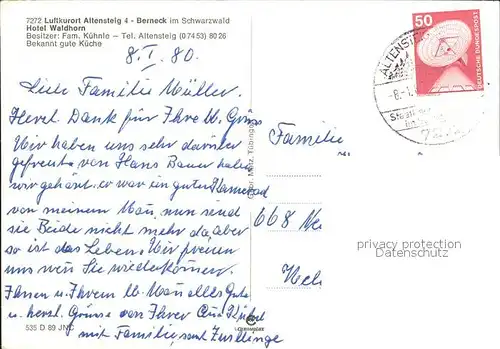 7272 Luftkurort Altensteig 4 - Berneck im Schwarzwald
Hotel Waldhorn
Besitzer: Fam. Kühnle - Tel. Altensteig (07453) 8026
Bekannt gute Küche
8. I. 80.
Liebe Familie Müller.
Herzl. Dank für Ihre u. Grüsse
Wir haben uns sehr darüber
gefreut von Hans Bauer haben
wir gehört, er war ein guter Kamerad
von meinem Mann, nun sind
sie Beide nicht mehr da, aber
so ist das Leben. Wir freuen
uns wenn Sie wiederkommen.
Ihnen u. Ihrem Mann alles Gute
u. herzl. Grüsse von Ihrer
mit Familie, samt Zwillinge
535 D 89 JNC
Gebr. Metz, Tübingen
50
DEUTSCHE BUNDESPOST
ALTENSTEIG
-8.-1.
Familie
668
privacy protection
Datenschutz